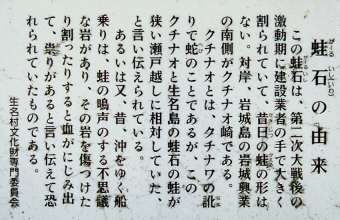 蛙石の由来
この蛙石は、第二次大戦後の
激動期に建設業者の手で大きく
割られていて、昔日の蛙の形は
ない。対岸、岩城島の岩城興業
の南側がクチナオ崎である。
クチナオとは、クチナワの訛
りで蛇のことであるが、この
クチナオと生名島の蛙石の蛙が
狭い瀬戸越しに相対していた、
と言い伝えられている。
あるいは又、昔、沖をゆく船
乗りは、蛙の鳴声のする不思議
な岩があり、その岩を傷つけた
り割ったりすると血がにじみ出
て、祟りがあると言い伝えて恐
れられていたものである。
生名村文化財専門委員会